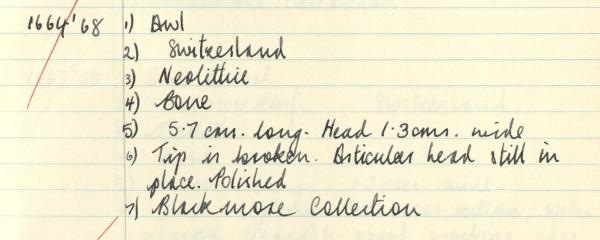 1664'68 1) Awl
2) Switzerland
3) Neolithic
4) Bone
5) 5.7 cms. long. Head 1.3 cms. wide
6) Tip is broken. Articular head still in
place. Polished
7) Blackmore Collection